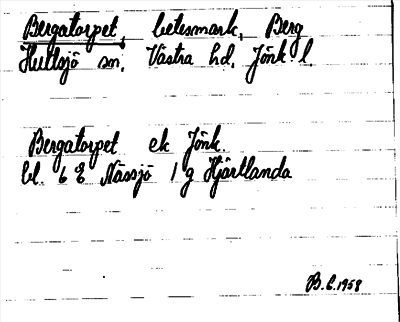 Bergatorpet, betesmark, Berg
Hultsjö sn, Västra hd, Jönk. l.
Bergatorpet ek Jönk.
bl. 6 E Nässjö 1 g Hjärtlanda
B.E. 1958